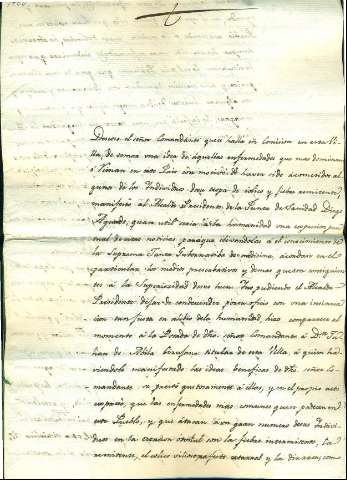 Deseoso el señor Comandante que se halla en Comision en esta Vi-
lla, de tomar una idea de aquellas enfermedades que mas dominan
y Reinan en este Pais con motivo de haver sido acometidos al-
guno de los Individuos de su tropa de colico y fiebre remitente,
manifestó al Alcalde Presidente de la Junta de Sanidad Diego
Aguado, quan util seria a la humanidad una exposicion pun-
tual de estas noticias para que elevandolas a el conocimiento de
la Suprema Junta Gubernativa de medicina, acordase en el
particular los medios precautativos y demas que son consiguien-
tes á la Superioridad de sus luces. No pudiendo el Alcalde
Presidente dejar de condescender gustoso con una instancia
tan justa en alibio de la humanidad, hizo comparecer al
momento á la Posada de dho. señor Comandante á Dn. Ju-
lian de Abila
titular de esta Villa, á quien ha-
viendole manifestado las ideas beneficas de dho. señor Co-
mandante se prestó gustosamente á ellas, y en el propio acto
expresó, que las enfermedades mas comunes que se padecen en
este Pueblo, y que atacan á un gran numero de sus Indivi-
duos en la estacion otoñal son la fiebre intermitente, la
remitente, el colico vilioso, catarral y la diarrea; como